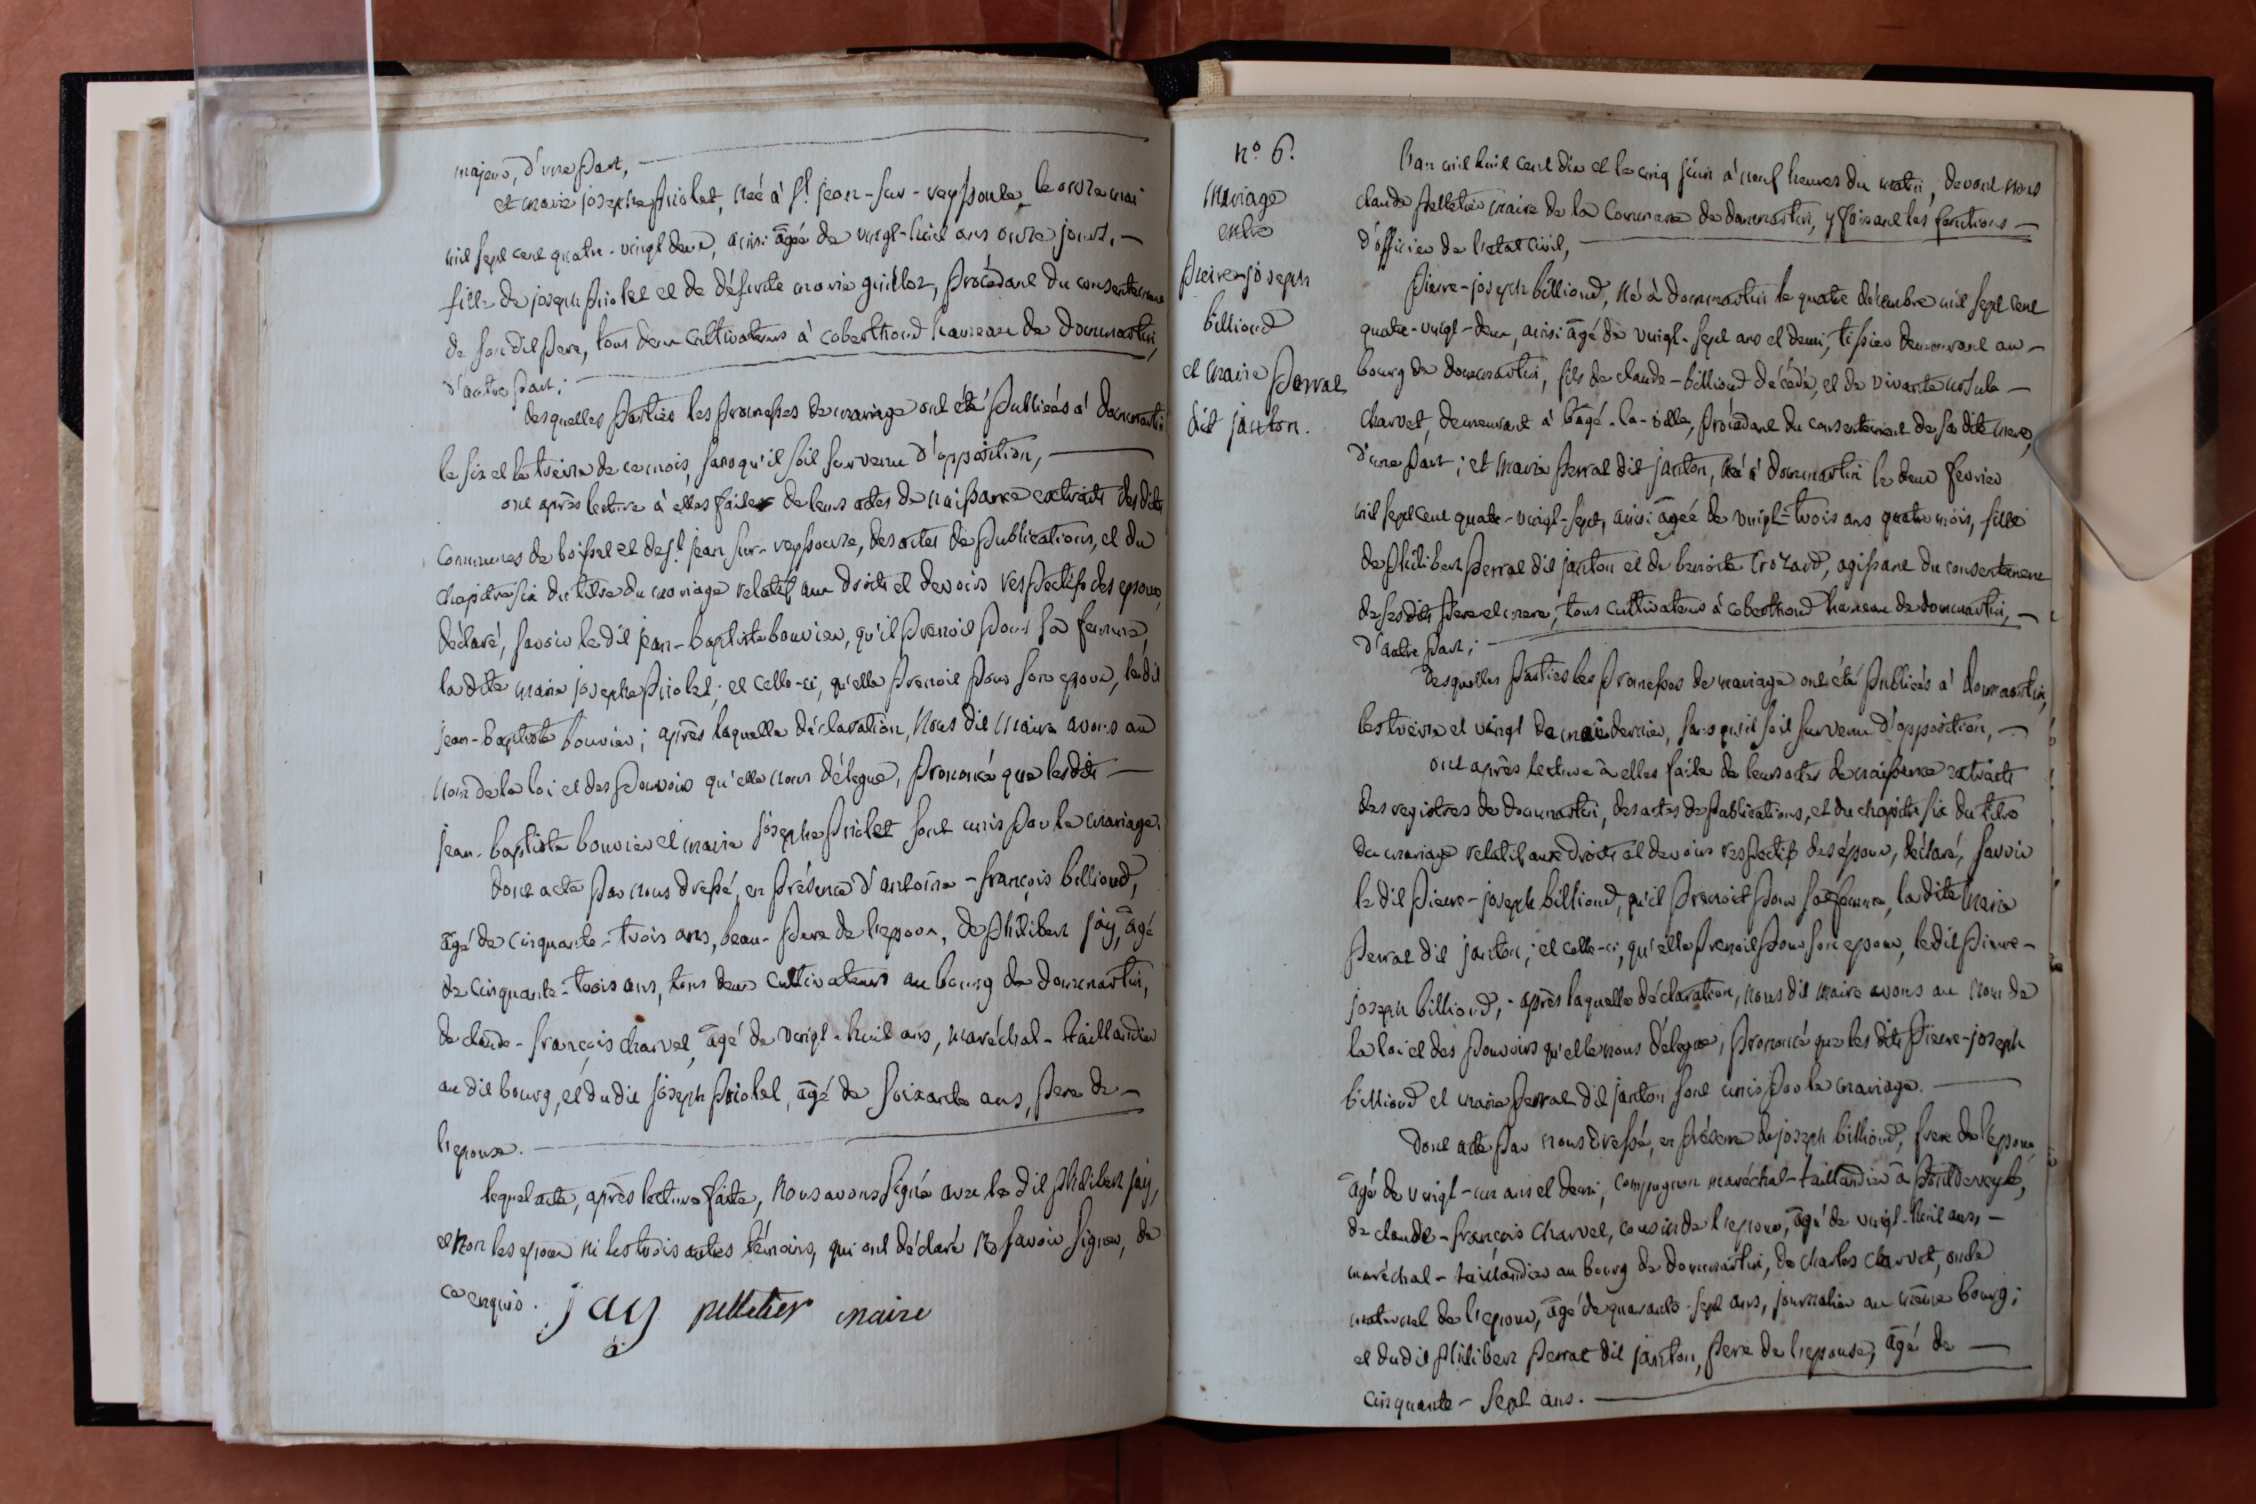 majeur, d'une part,
et marie josephe priolet, née à St. jean-sur-veyssoule le onze mai
mil sept cent quatre-vingt deux, ainsi âgée de vingt-huit ans onze jours,
fille de joseph priolet et de défunte marie guillot, procédant du consentement
de son dit pere, tous deux cultivateurs à coberthoud hameau de dommartin,
d'autre part;
desquelles parties les promesses de mariage ont été publiées à dommartin
le six et le treize de ce mois, sans qu'il soit survenu d'opposition,
ont après lecture à elles faite de leurs actes de naissance extraits des dites
communes de boissel et de St. jean sur-veyssouze, des actes de publications, et du
chapitre six du titre du mariage relatif aux droits et devoirs respectifs des epoux,
déclaré, savoir le dit jean-baptiste bouvier, qu'il prenoit pour sa femme,
la dite marie josephe priolet; et celle-ci, qu'elle prenoit pour son epoux, le dit
jean-baptiste bouvier; après laquelle déclaration, nous dit maire avons au
nom de la loi et des pouvoirs qu'elle nous délegue, prononcé que les dits
jean-baptiste bouvier et marie josephe priolet sont unis par le mariage.
dont acte par nous dressé, en présence d'antoine-françois billioud,
âgé de cinquante-trois ans, beau-pere de l'epoux, de philibert jay, âgé
de cinquante-trois ans, tous deux cultivateurs au bourg de dommartin,
de claude-françois charvet, âgé de vingt-huit ans, maréchal-taillandier
au dit bourg, et du dit joseph priolet, âgé de soixante ans, pere de
l'epouse.
lequel acte, après lecture faite, nous avons signé avec le dit philibert jay,
et non les epoux ni les trois autres témoins, qui ont déclaré ne savoir signer, de
ce enquis. jay pelletier maire
n° 6.
Mariage
entre
pierre-joseph
billioud
et marie perrat
dit janton.
l'an mil huit cent dix et le cinq juin à neuf heures du matin, devant nous
claude pelletier maire de la commune de dommartin, y faisant les fonctions
d'officier de l'etat civil,
pierre-joseph billioud, né à dommartin le quatre décembre mil sept cent
quatre-vingt-deux, ainsi âgé de vingt-sept ans et demi, tissier demeurant au
bourg de dommartin, fils de claude-billioud décédé, et de vivante ursule
charvet, demeurant à bâgé-la-ville, procédant du consentement de sa dite mere,
d'une part; et marie perrat dit janton, née à dommartin le deux fevrier
mil sept cent quatre-vingt-sept, ainsi âgée de vingt-trois ans quatre mois, fille
de philibert perrat dit janton et de benoite crozard, agissant du consentement
de ses dits pere et mere, tous cultivateurs à coberthoud hameau de dommartin,
d'autre part;
desquelles parties les promesses de mariage ont été publiées à dommartin,
les treize et vingt de mai dernier, sans qu'il soit survenu d'opposition,
ont après lecture à elles faite de leurs actes de naissance extraits
des registres de dommartin, des actes de publications, et du chapitre six du titre
du mariage relatif aux droits et devoirs respectifs des époux, déclaré, savoir
le dit pierre-joseph billioud, qu'il prenoit pour sa femme, la dite marie
perrat dit janton; et celle-ci, qu'elle prenoit pour son epoux, le dit pierre-
joseph billioud; après laquelle déclaration, nous dit maire avons au nom de
la loi et des pouvoirs qu'elle nous délegue, prononcé que les dits pierre-joseph
billioud et marie perrat dit janton sont unis par le mariage.
dont acte par nous dressé, en présence de joseph billioud, frere de l'epoux,
âgé de vingt-un ans et demi, compagnon maréchal-taillandier à pontdeveyle,
de claude-françois charvet, cousin de l'epoux, âgé de vingt-huit ans,
maréchal-taillandier au bourg de dommartin, de charles charvet, oncle
maternel de l'epoux, âgé de quarante-sept ans, journalier au même bourg;
et du dit philibert perrat dit janton, pere de l'epouse, âgé de
cinquante-sept ans.